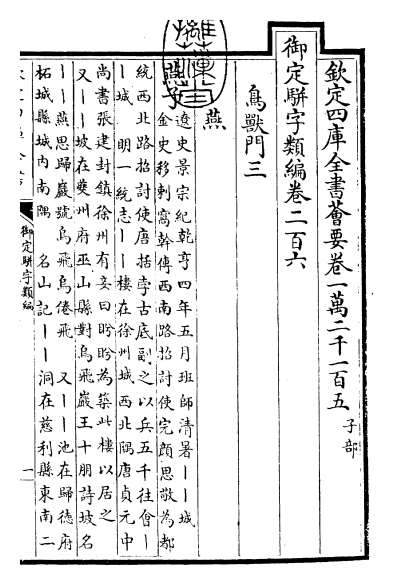 欽定四庫全書薈要卷一萬二千一百五 子部
御定駢字類編卷二百六
鳥獸門三
燕
燕子
遼史景宗紀乾亨四年五月班師清暑丨丨城
金史移剌窩幹傳西南路招討使完顏思敬為都
統西北路招討使唐括孛古底副之以兵五千往會丨
丨城 明一統志丨丨樓在徐州城西北隅唐貞元中
尚書張建封鎮徐州有妾曰盼盼為築此樓以居之
又丨丨坡在夔州府巫山縣對烏飛巖王十朋詩坡名
丨丨燕思歸巖號烏飛烏倦飛 又丨丨池在歸德府
柘城縣城内南隅 名山記丨丨洞在慈利縣東南二
御定駢字類編
一